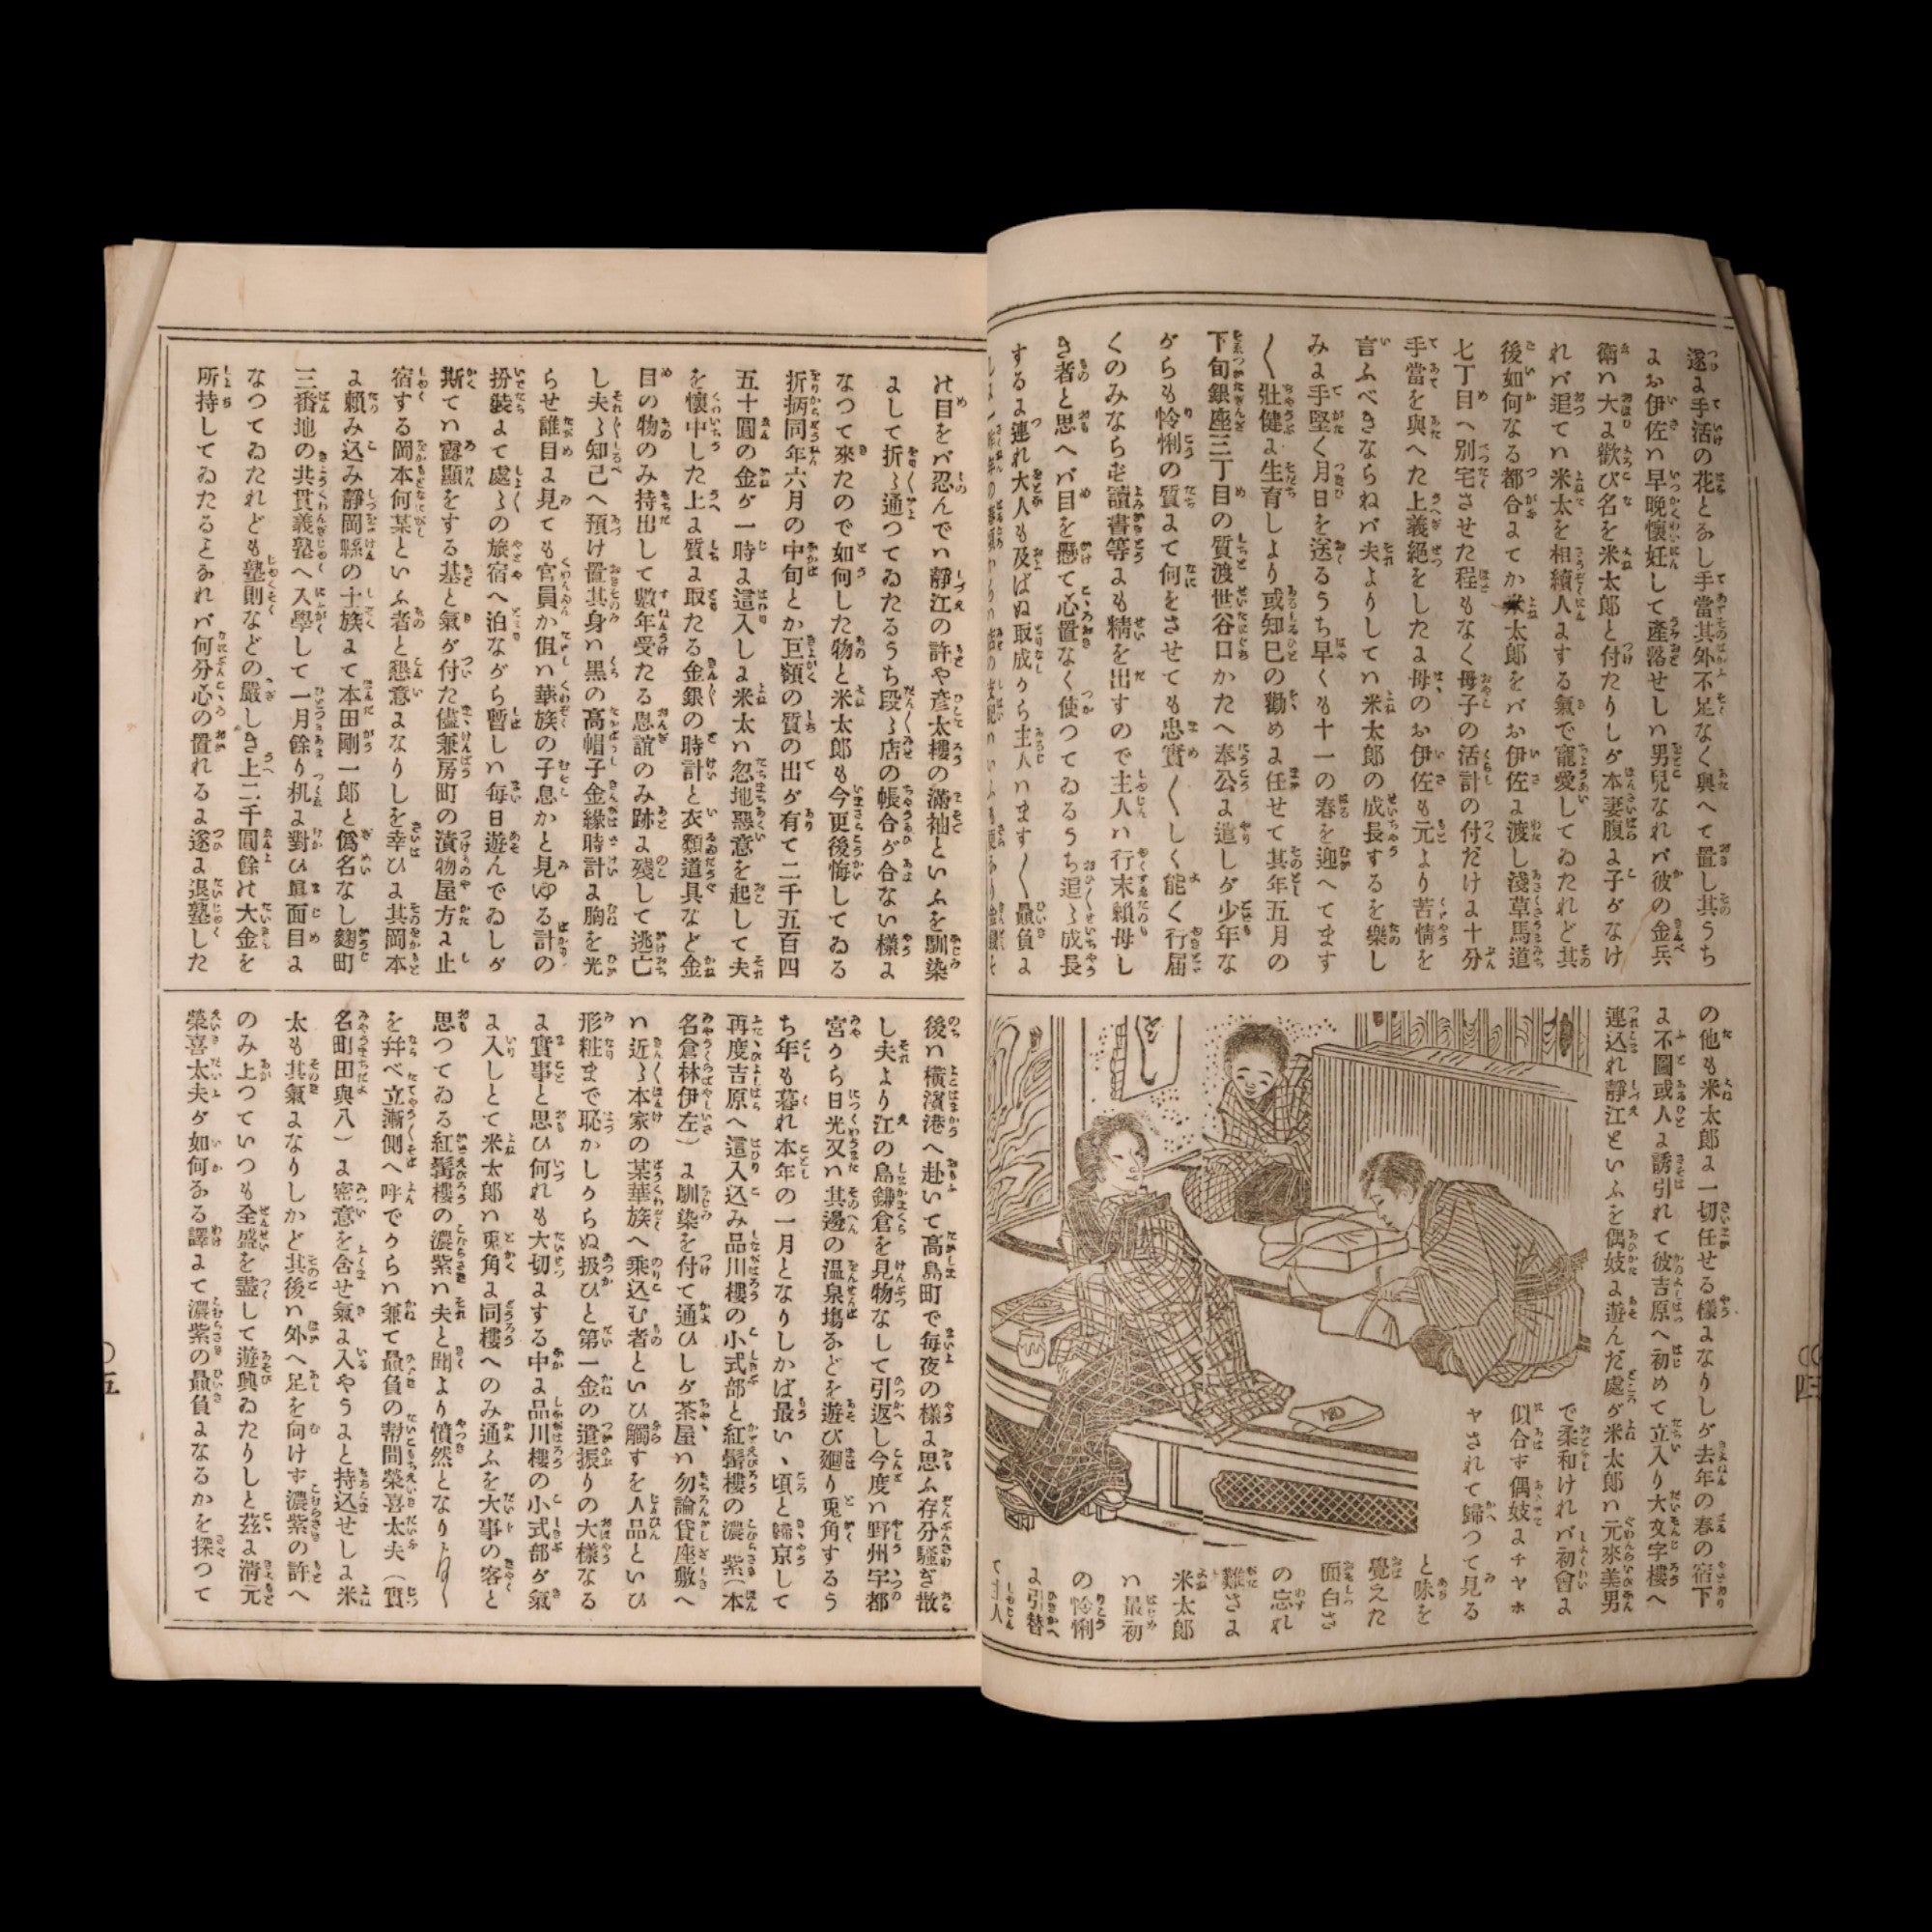 遂に手活の花となし手當其外不足なく與へて置し其うち
にお伊佐ハ早晩懷妊して產落せしハ男兒なれバ彼の金兵
衛ハ大に歡び名を米太郎と付たりしが本妻腹に子がなけ
れバ追てハ米太を相續人にする氣で寵愛してゐたれど其
後如何なる都合にてか米太郎をバお伊佐に渡し淺草馬道
七丁目へ別宅させた程もなく母子の活計の付だけに十分
手當を與へた上義絕をしたに母のお伊佐も元より苦情を
言ふべきならねバ夫よりしてハ米太郎の成長するを樂し
みに手堅く月日を送るうち早くも十一の春を迎へてます
〱壯健に生育しより或知己の勸めに任せて其年五月の
下旬銀座三丁目の質渡世谷口かたへ奉公に遣しが少年な
がらも怜悧の質にて何をさせても忠實〱しく能く行届
くのみならず讀書等にも精を出すので主人ハ行末賴母し
き者と思へバ目を懸て心置なく使つてゐるうち追々成長
するに連れ大人も及ばぬ取成から主人ハます〱贔負に
の他も米太郎に一切任せる樣になりしが去年の春の宿下
に不圖或人に誘引れて彼吉原へ初めて立入り大文字樓へ
連込れ靜江といふを偶妓に遊んだ處が米太郎ハ元來美男
で柔和けれバ初會に
似合ず偶妓にチヤホ
ヤされて歸つて見る
と味を
覺えた
面白さ
の忘れ
難さに
米太郎
ハ最初
の怜悧
に引替
て主人
の目をバ忍んでハ靜江の許や彥太樓の滿袖といふを馴染
にして折々通つてゐたるうち段々店の帳合が合ない樣に
なつて來たので如何した物と米太郎も今更後悔してゐる
折抦同年六月の中旬とか巨額の質の出が有て二千五百四
五十圓の金が一時に這入しに米太ハ忽地惡意を起して夫
を懷中した上に質に取たる金銀の時計と衣類道具など金
目の物のみ持出して數年受たる恩誼のみ跡に殘して逃亡
し夫々知己へ預け置其身ハ黑の高帽子金緣時計に胸を光
らせ誰目に見ても官員か但ハ華族の子息かと見ゆる計の
扮裝にて處々の旅宿へ泊ながら暫しハ每日遊んでゐしが
斯てハ露顯をする基と氣が付た儘兼房町の漬物屋方に止
宿する岡本何某といふ者と懇意になりしを幸ひに其岡本
に賴み込み靜岡縣の士族にて本田剛一郎と僞名なし麴町
三番地の共貫義塾へ入學して一月餘り机に對ひ眞面目に
なつてゐたれども塾則などの嚴しき上二千圓餘の大金を
所持してゐたる𪜈なれバ何分心の置れるに遂に退塾した
後ハ橫濱港へ赴いて高島町で每夜の樣に思ふ存分騷ぎ散
し夫より江の島鎌倉を見物なして引返し今度ハ野州宇都
宮から日光又ハ其邊の溫泉塲などを遊び廻り兎角するう
ち年も暮れ本年の一月となりしかば最いゝ頃と歸京して
再度吉原へ這入込み品川樓の小式部と紅髫樓の濃紫(本
名倉林伊左)に馴染を付て通ひしが茶屋ハ勿論貸座敷へ
ハ近々本家の某華族へ乘込む者といひ觸すを人品といひ
形粧まで恥かしからぬ扱ひと第一金の遣振りの大樣なる
に實事と思ひ何れも大切にする中に品川樓の小式部が氣
に入しとて米太郎ハ兎角に同樓へのみ通ふを大事の客と
思つてゐる紅髫樓の濃紫ハ夫と聞より憤然となり〱
を幷べ立漸側へ呼でからハ兼て贔負の幇間榮喜太夫(實
名町田與八)に密意を含せ氣に入やうにと持込せしに米
太も其氣になりしかど其後ハ外へ足を向けず濃紫の許へ
のみ上つていつも全盛を盡して遊興ゐたりしと茲に淸元
榮喜太夫が如何なる譯にて濃紫の贔負になるかを探つて
四
五